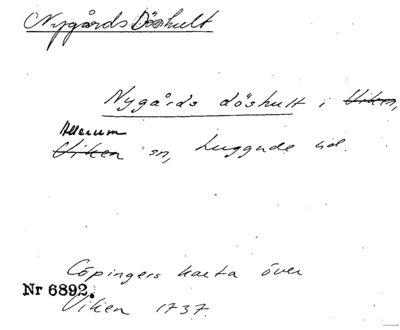 Nygårds Döshult
Nygårds döshult i Viken,
Allerum
Viken sn, Luggude hd.
Cöpingers karta över
Nr 6892.
Viken 1737.